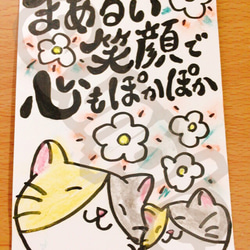 まあるい
笑顔で
心もぽかぽか